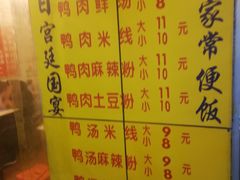 鸭肉鲜 小 8
鸭肉米线 大 11 小 10 元
鸭肉麻辣粉 大 11 小 10 元
鸭肉土豆粉 大 11 小 10 元
鸭汤米线 大 9 小 8 元
鸭汤麻辣 大 9 小 8 元
家常便饭
日宫廷国宴